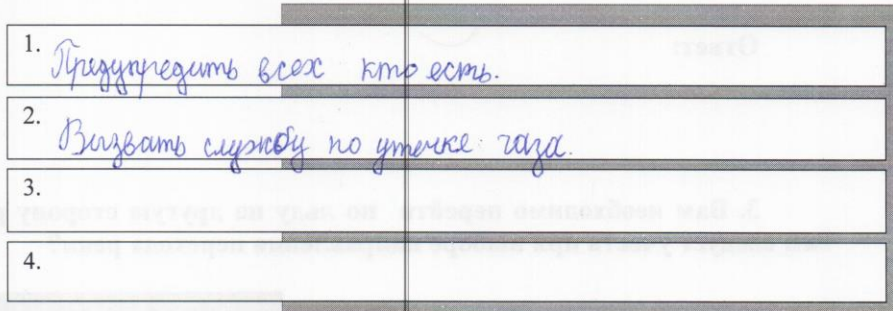 1. Предупредить всех кто есть.
2. Вызвать службу по утечке газа.
3.
4.